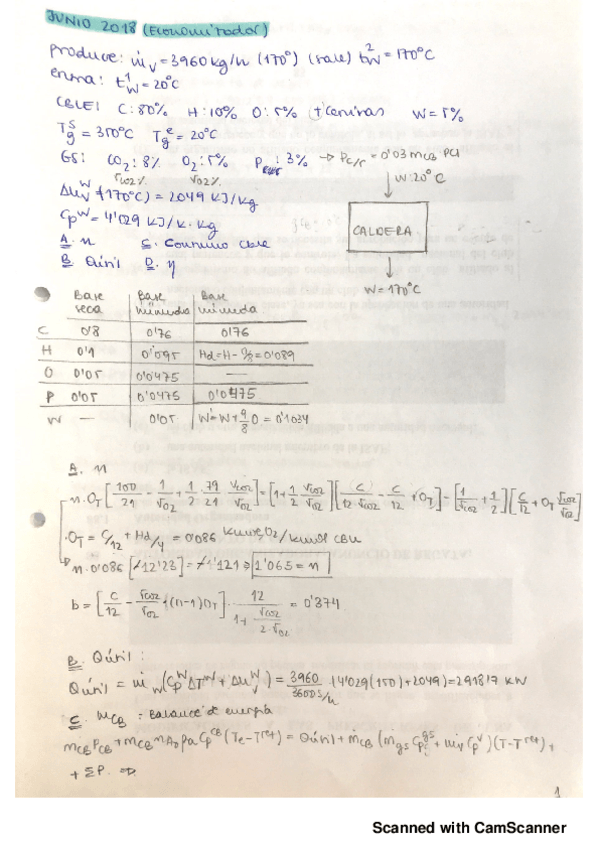 JUNIO 2018 (Economizador)
Produce: ṁv = 3960 kg/h (170°) (sale) t²w = 170°C
entra: t¹w = 20°C
C: 80% H: 10% O: 5% (+ cenizas W = 5%
Tgs = 350°C Tge = 20°C
GS: CO2: 8% O2: 5% : 3% → = 0'03 mCB PCI
rCO2% rO2%
W: 20°C
Δuvw (170°C) = 2049 KJ/kg
Cpw = 4'029 KJ/K·Kg
CALDERA
A. n C. Consumo
B. Qútil D. η
W = 170°C
Base seca Base húmeda Base húmeda
C 0'8 0'76 0'76
H 0'1 0'095 Hd = H - O/8 = 0'089
O 0'05 0'0475 —
P 0'05 0'0475 0'0475
W — 0'05 W' = W + 9/8 O = 0'1034
A. n
n·OT [100/21 - 1/rO2 + 1/2 · 79/21 · rCO2/rO2] = [1 + 1/2 rCO2/rO2] [C/12·rCO2 - C/12 + OT] - [1/rCO2 + 1/2] [C/12 + OT rCO2/rO2]
·OT = C/12 + Hd/4 = 0'086 O2/kmol
n·0'086 [-12'23] = -1'121 ⇒ 1'065 = n
b = [C/12 - rCO2/rO2 · (n-1)OT] · 12/(1 + rCO2/2·rO2) = 0'374
B. Qútil:
Qútil = ṁw (Cpw ΔTw + Δuvw) = 3960/3600 s/h · (4'029(150) + 2049) = 2918'7 KW
C. mCB : Balance de energía
ṁCB PCB + mCB Cp (Te - Tref) = Qútil + ṁCB (mgs Cpgs + Cpv)(T - Tref) +
+ ΣP. ⇒
1
Scanned with CamScanner